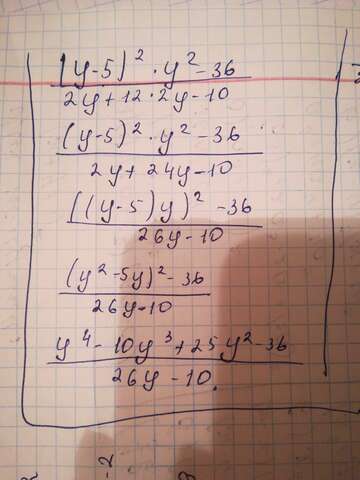 (y-5)² · y² - 36
2y + 12 · 2y - 10
(y-5)² · y² - 36
2y + 24y - 10
((y-5)y)² - 36
26y - 10
(y² - 5y)² - 36
26y - 10
y⁴ - 10y³ + 25y² - 36
26y - 10.